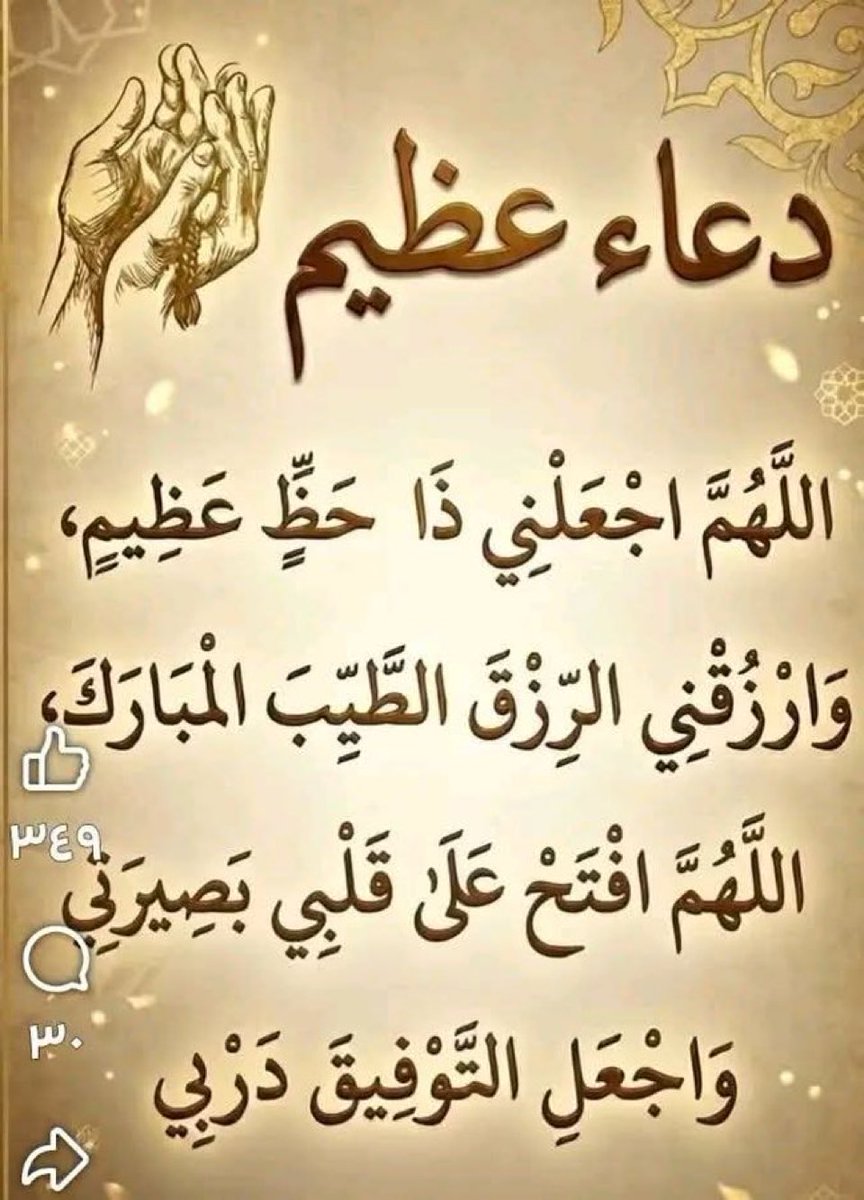 دعاء عظيم
اللَّهُمَّ اجْعَلْنِي ذَا حَظٍّ عَظِيمٍ،
وَارْزُقْنِي الرِّزْقَ الطَّيِّبَ الْمُبَارَكَ،
اللَّهُمَّ افْتَحْ عَلَىٰ قَلْبِي بَصِيرَتِي
وَاجْعَلِ التَّوْفِيقَ دَرْبِي
٣٤٩
٣٠